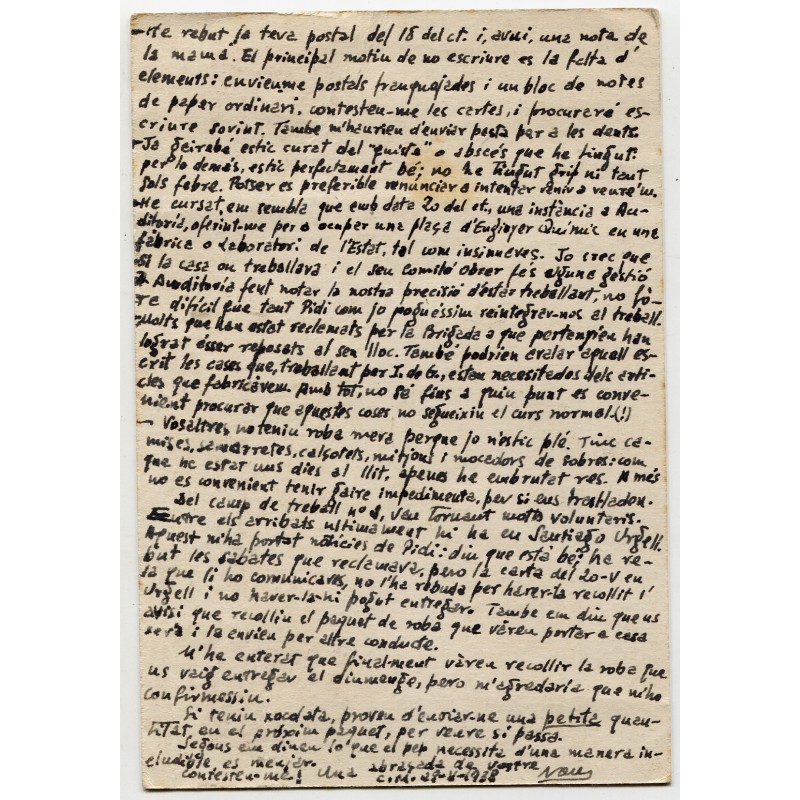 - He rebut la teva postal del 18 del ct. i, avui, una nota de
la mamà. El principal motiu de no escriure es la falta d'
elements: envieume postals franquejades i un bloc de notes
de paper ordinari, contesteu-me les cartes, i procuraré es-
criure sovint. També m'haurieu d'enviar pasta per a les dents.
- Ja gairebé estic curat del "quiste" o abscés que he tingut:
per lo demés, estic perfectament bé; no he tingut grip ni tant
sols febre. Potser es preferible renunciar a intentar venir a veure'm.
- He cursat, em sembla que amb data 20 del ct., una instància a Au-
ditoria, oferint-me per a ocupar una plaça d'Enginyer Químic en una
fàbrica o Laboratori de l'Estat, tal com insinuaves. Jo crec que
si la casa on treballava i el seu comité obrer fés alguna gestió
a Auuditoria fent notar la nostra precisió d'estar treballant, no fó-
ra difícil que tant Pidi com jo poguessim reintegrar-nos al treball.
Molts que han estat reclamats per la Brigada a que pertanyien han
lograt ésser reposats al seu lloc. També podrien avalar aquell es-
crit les cases que, treballant per I. de G., estan necessitades dels arti-
cles que fabricàvem. Amb tot, no sé fins a quin punt es conve-
nient procurar que aquestes coses no segueixin el curs normal.(!)
- Vosaltres no teniu roba meva perque jo n'estic plé. Tinc ca-
mises, samarretes, calçotets, mitjons i mocadors de sobres: com
que he estat uns dies al llit, apenes he embrutat res. A més
no es convenient tenir gaire impedimenta, per si ens traslladen.
Del camp de treball nº 3, van tornant molts voluntaris.
Entre els arribats ultimament hi ha en Santiago Urgell.
Aquest m'ha portat notícies de Pidi: diu que està bé; ha re-
but les sabates que reclamava, però la carta del 20-V en
la que li ho comunicaves, no l'ha rebuda per haver-la recollit l'
Urgell i no haver-la-hi pogut entregar. També em diu que us
avisi que recolliu el paquet de roba que vàreu portar a casa
seva i la envieu per altre conducte.
M'he enterat que final-ment vàreu recollir la roba que
us vaig entregar el diumenge, però m'agradaria que m'ho
confirmessiu.
Si teniu xocolata, proveu d'enviar-ne una petita quan-
titat, en el pròxim paquet, per veure si passa.
Segons em diuen lo que el pep necessita d'una manera in-
eludible, es menjar.
Contesteu-me! Una abraçada de vostre
C.M. 28-V-1938